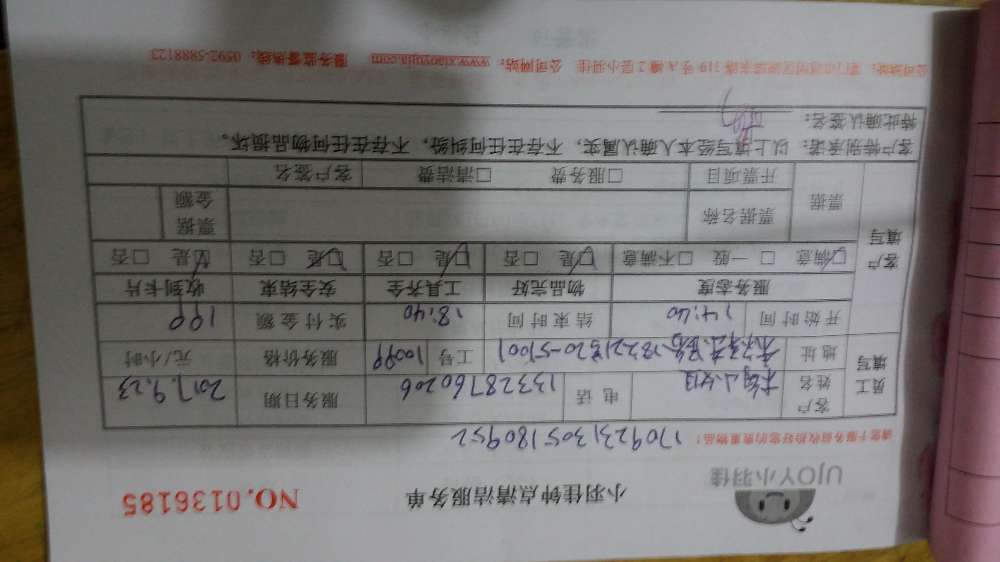 UJOY小羽佳
小羽佳钟点清洁服务单
NO.0136185
请您于服务前收拾好您的贵重物品！
170923130518095 2
员工填写 客户姓名 小姐 电话 13328760206 服务日期 2017.9.23
地址 工号 10099 服务价格 元/小时
开始时间 14:40 结束时间 18:40 实付金额 100
客户填写 服务态度 物品完好 工具齐全 安全结束 收到卡片
☑满意 □一般 □不满意 ☑是 □否 ☑是 □否 ☑是 □否 ☑是 □否
票据 票据名称 票据金额
开票项目 □服务费 □清洁费 客户签名
客户特别承诺：以上填写经本人确认属实，不存在任何纠纷，不存在任何物品损坏。
特此确认签名：
公司网站：www.xiaoyujia.com 服务监督热线：0592-5888123